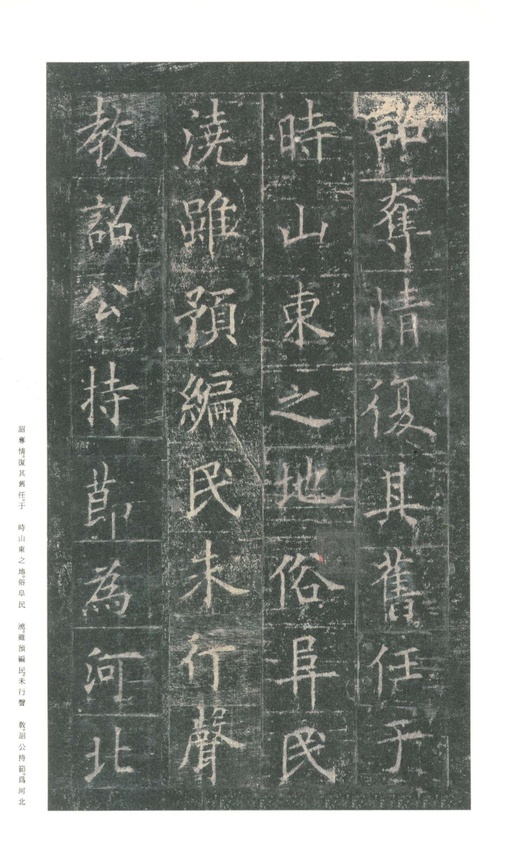 詔奪情復其舊任于
時山東之地俗阜民
澆雖預編民未行聲
教詔公持節為河北
詔奪情。復其舊任。于 時山東之地。俗阜民 澆。雖預編民。未行聲 教。詔公持節。爲河北